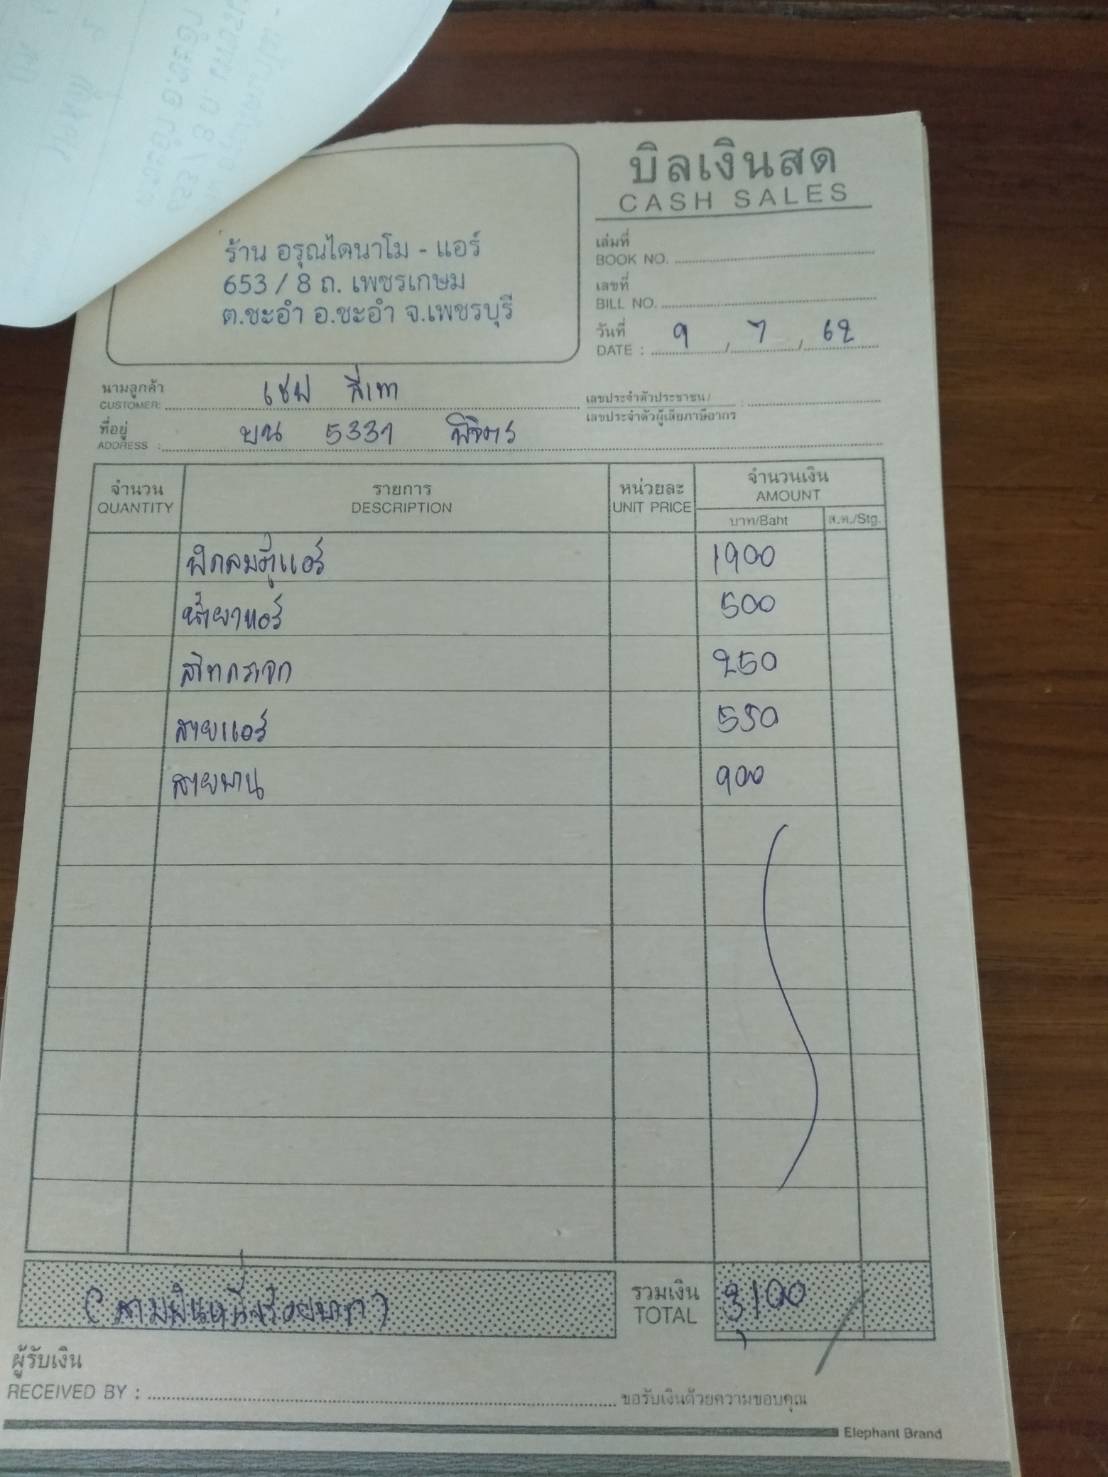 บิลเงินสด
CASH SALES
ร้าน อรุณไดนาโม - แอร์
653 / 8 ถ. เพชรเกษม
ต.ชะอำ อ.ชะอำ จ.เพชรบุรี
เล่มที่
BOOK NO.
เลขที่
BILL NO.
วันที่
DATE : 9 , 7 , 62
นามลูกค้า
CUSTOMER: เชฟ สีเทา
เลขประจำตัวประชาชน /
เลขประจำตัวผู้เสียภาษีอากร :
ที่อยู่
ADDRESS : บน 5331 พิจิตร
จำนวน รายการ หน่วยละ จำนวนเงิน
QUANTITY DESCRIPTION UNIT PRICE AMOUNT
บาท/Baht ส.ต./Stg.
พัดลมตู้แอร์ 1900
น้ำยาแอร์ 500
สวิทกระจก 250
สายแอร์ 550
สายพาน 900
(สามพันหนึ่งร้อยบาท) รวมเงิน 3,100
TOTAL
ผู้รับเงิน
RECEIVED BY : ขอรับเงินด้วยความขอบคุณ
Elephant Brand